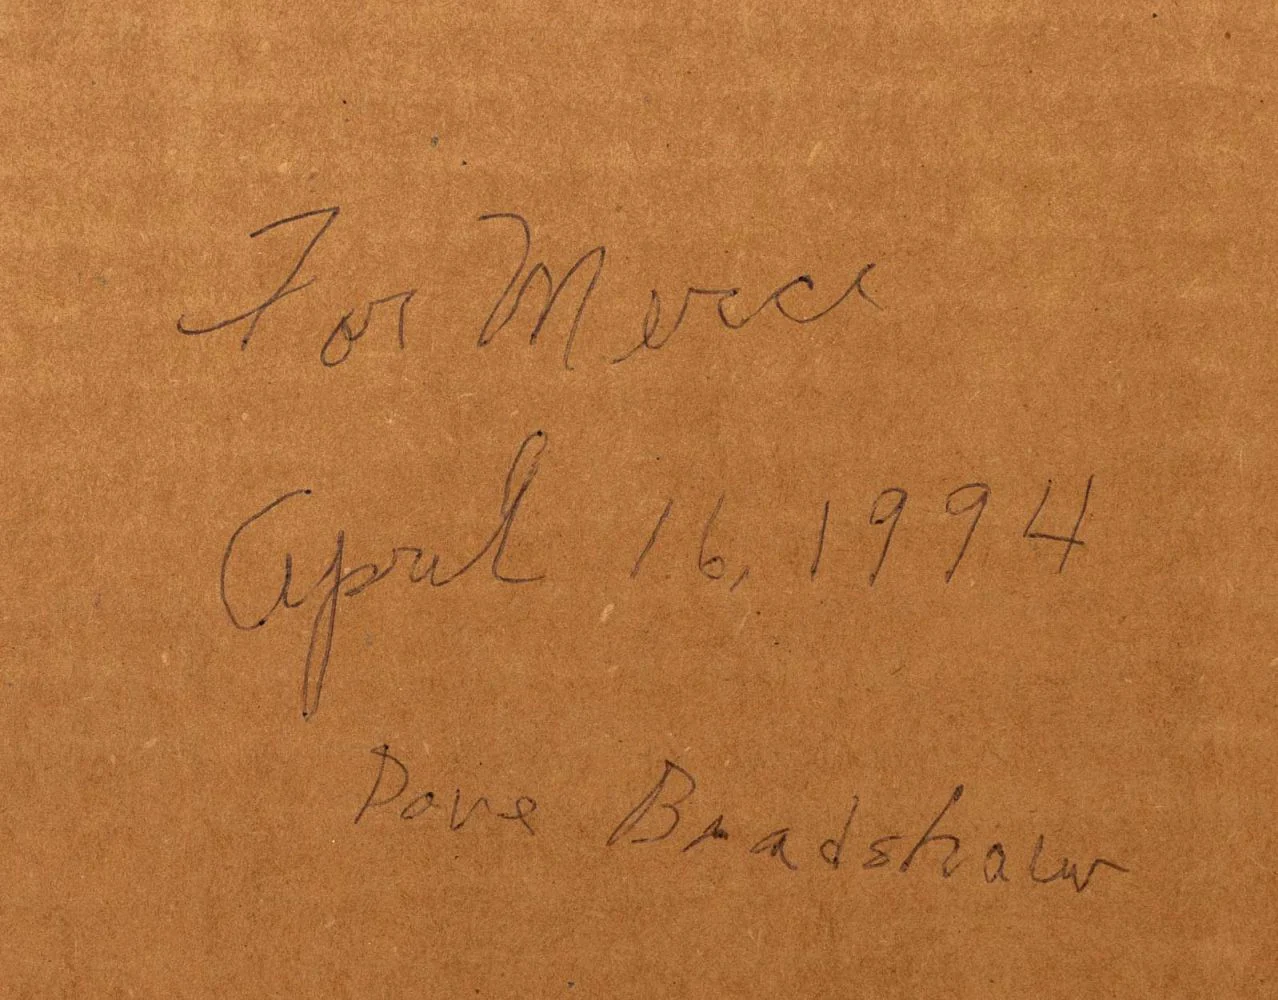 For Merce
April 16, 1994
Dove Bradshaw